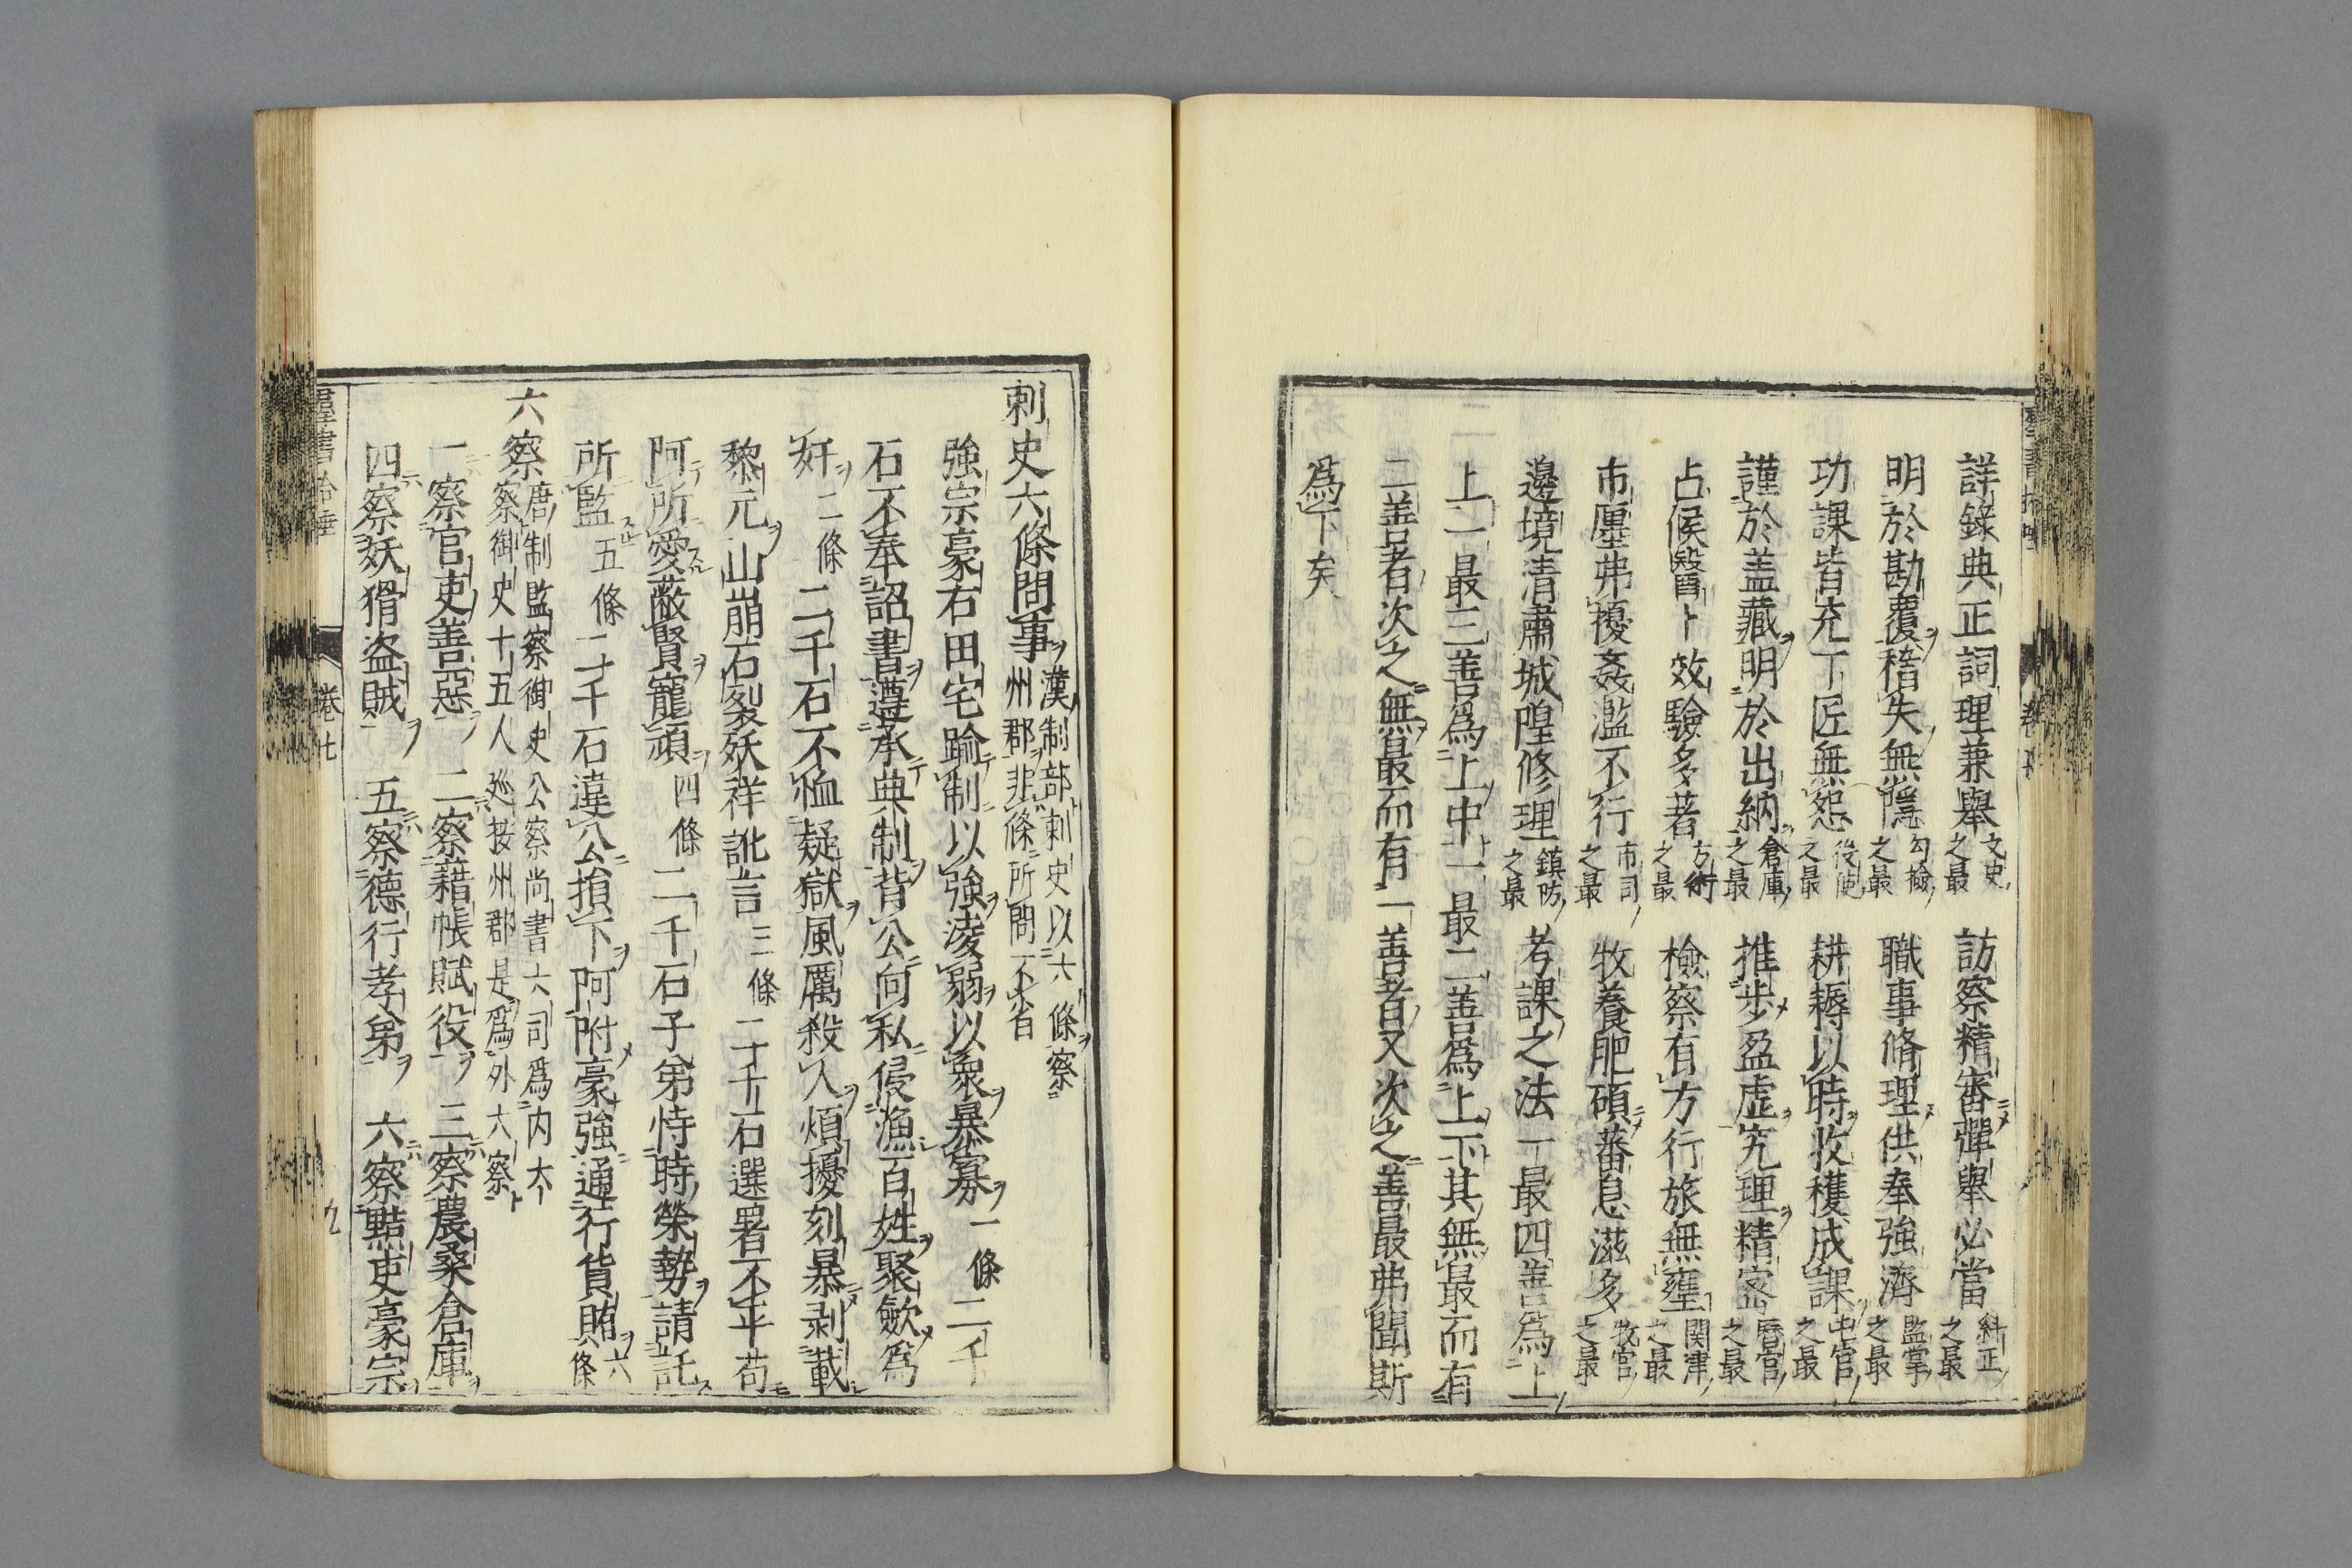 詳錄典正詞理兼舉文史之最　訪察精審彈舉必當糾正之最
明於勘覆稽失無隱勾檢之最　職事脩理供奉強濟監掌之最
功課皆充丁匠無怨役使之最　耕耨以時收穫成課屯官之最
謹於盖藏明於出納倉庫之最　推步盈虛究理精密曆官之最
占候毉卜效驗多著方術之最　檢察有方行旅無壅関津之最
市廛弗擾姦濫不行市司之最　牧養肥碩蕃息滋多牧官之最
邊境清肅城隍修理鎮防之最　考課之法一最四善爲上
上一最三善爲上中一最二善爲上下其無最而有
二善者次之無最而有一善者又次之善最弗聞斯
爲下矣
刺史六條問事漢制部刺史以六條察州郡非條所問不省
強宗豪右田宅踰制以強淩弱以衆暴寡一條二千
石不奉詔書遵承典制背公向私侵漁百姓聚歛爲
奸二條二千石不恤疑獄風厲殺人煩擾刻暴剥載
黎元山崩石裂妖祥訛言三條二千石選署不平苟
阿所愛蔽賢寵頑四條二千石子弟恃時榮勢請託
所監五條二千石違公損下阿附豪強通行貨賄六條
六察唐制監察御史公察尚書六司爲内六察御史十五人巡按州郡是爲外六察
一察官吏善惡　二察藉帳賦役　三察農桑倉庫
四察妖猾盗賊　五察德行孝弟　六察黠吏豪宗
羣書拾唾　卷七　九